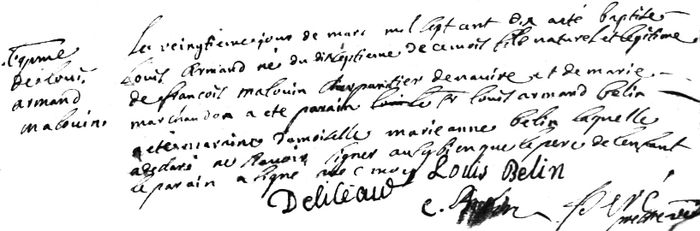 Bapteme
de louis
armand
malouin
Le vingtieme jour de mars mil sept cent dix a eté baptisé
louis armand né du dixseptieme de ce mois fils naturel et legitime
de francois malouin charpantier de navire et de marie
marchandon a eté parain le sr louis armand belin
a eté marraine damoiselle marie anne belin laquelle
a declaré ne scavoir signer aussy bien que le pere de lenfant
le parain a signé avec moy Louis Belin
Delileau